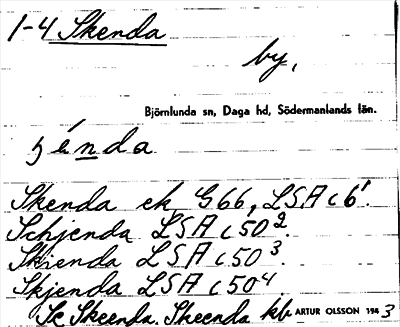 1-4 Skenda
by,
Björnlunda sn, Daga hd, Södermanlands län.
ʒénda
Skenda ek G66, LSA c 6¹.
Schjenda LSA c 50².
Skienda LSA c 50³
Skjenda LSA c 50⁴
Sc Skeenda, Skeenda kb ARTUR OLSSON 1943